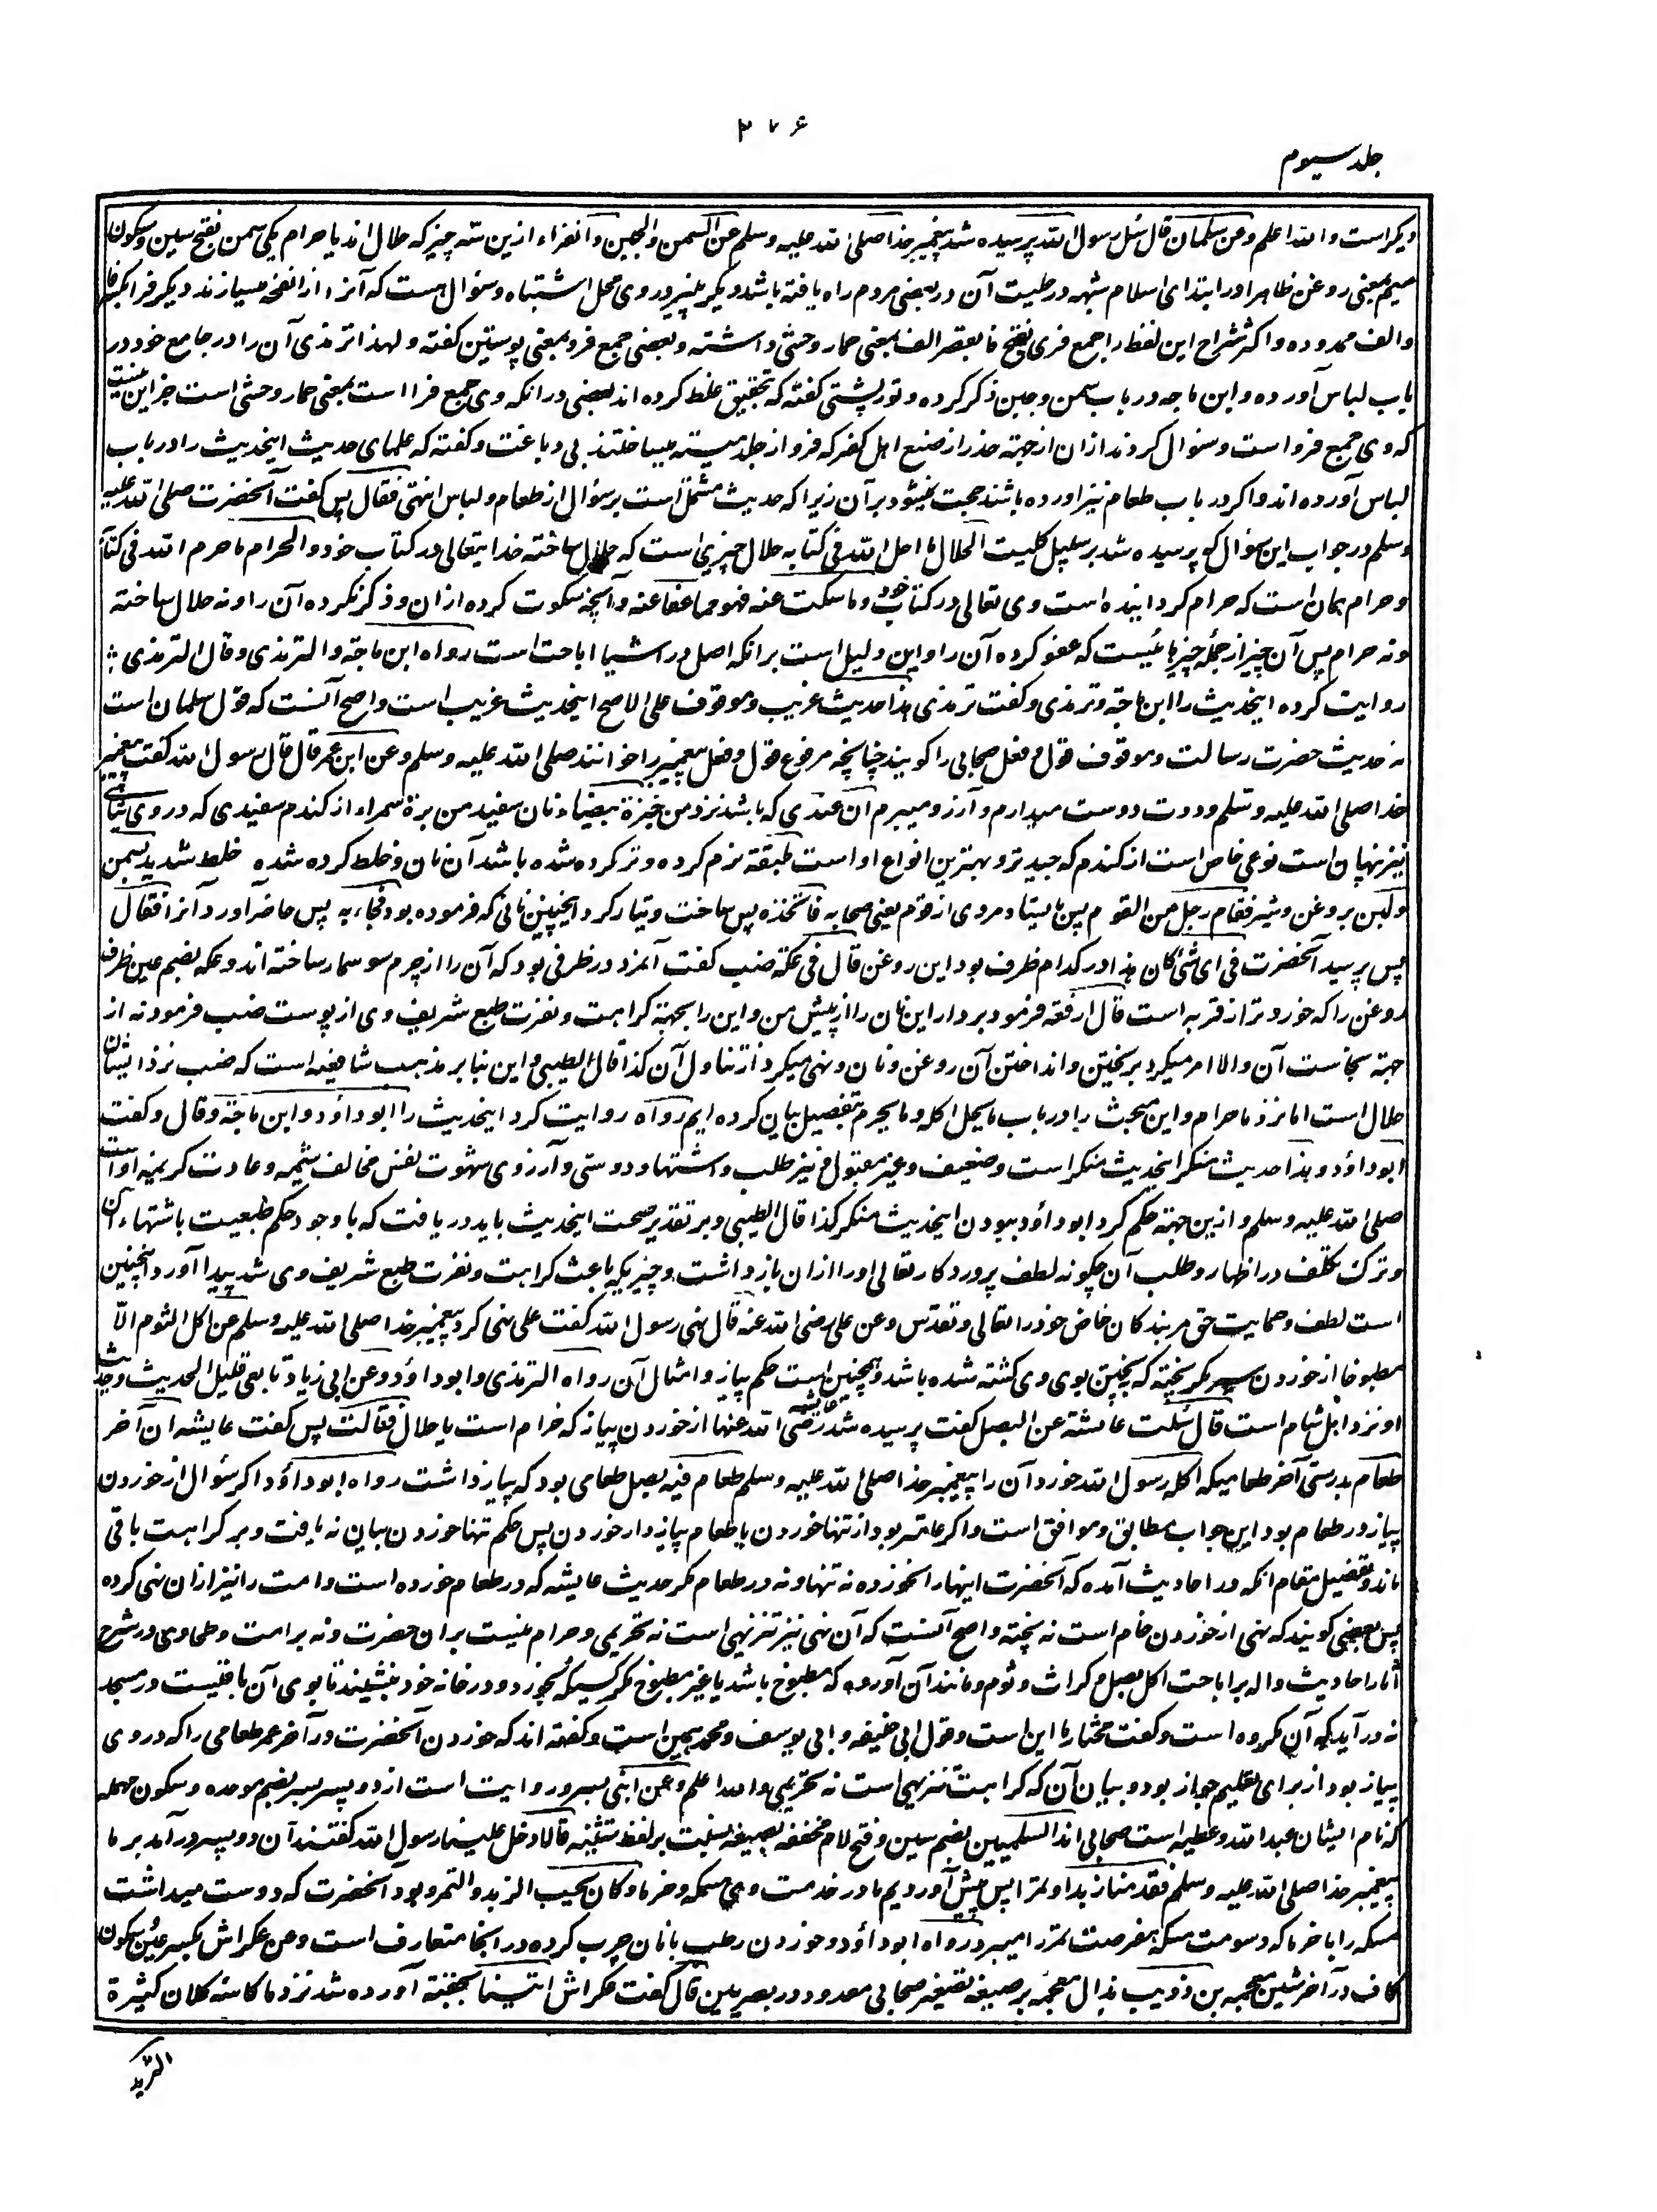 ۲۷۶
جلد سیوم
دیکر است و الله اعلم وعن سلمان قال سُئل رسول الله پرسیده شد پیغمبر خدا صلی الله علیه وسلم عن السمن والجبن والفراء ازین سّه چیز که حلال اند یا حرام یکی سمن بفتح سین وسکون
میم بمعنی روغن ظاهرا در ابتدای اسلام شبهه در حلیت آن در بعضی مردم راه یافته باشد دیکر پنیر و روی محل اشتباه وسئوال هست که آنرا از انفخه میسازند دیکر فرا بکسر فا
والف ممدوده واکثر شراح این لفظ را جمع فری بفتح فا بقصر الف بمعنی حمار وحشی داشته وبعضی جمع فرو بمعنی پوستین کفته ولهذا ترمذی آن را در جامع خود در
باب لباس آورده وابن ماجه در باب سمن وجبن ذکر کرده وتورپشتی کفته که تحقیق غلط کرده اند بعضی در انکه وی جمع فرا است بمعنی حمار وحشی است جز این نیست
که وی جمع فرو است وسئوال کردند از ان از جهته حذر از صنع اهل کفر که فرو از جلد میته میساختند بی دباغت وکفته که علمای حدیث اینحدیث را در باب
لباس آورده اند واکر در باب طعام نیز آورده باشند حجت نمیشود بر آن زیرا که حدیث مشتمل است بر سئوال از طعام ولباس انتهی فقال پس کفت آنحضرت صلی الله علیه
وسلم در جواب این سئوال که پرسیده شد بر سبیل کلیت الحلال ما احل الله فی کتابه حلال چیزی است که حلال ساخته خدایتعالی در کتاب خود والحرام ما حرم الله فی کتابه
وحرام همان است که حرام کردانیده است وی تعالی در کتاب خود وما سکت عنه فهو مما عفا عنه وآنچه سکوت کرده از ان وذکر نکرده آن را ونه حلال ساخته
ونه حرام پس آن چیز از جمله چیزهائیست که عفو کرده آن را واین دلیل است بر انکه اصل در اشیا اباحت است رواه ابن ماجة والترمذی وقال الترمذی
روایت کرده اینحدیث را ابن ماجة وترمذی وکفت ترمذی هذا حدیث غریب وموقوف علی الاصح اینحدیث غریب است واصح آنست که قول سلمان است
نه حدیث حضرت رسالت وموقوف قول وفعل صحابی را کویند چنانچه مرفوع قول وفعل پیغمبر را خوانند صلی الله علیه وسلم وعن ابن عمر قال قال رسول الله کفت پیغمبر
خدا صلی الله علیه وسلم وددت دوست میدارم وآرزو میبرم ان عندی که باشد نزد من خبزة بیضاء نان سفید من برة سمراء از کندم سفیدی که در وی سیاهی
نیز پنهان است نوعی خاص است از کندم که جید تر وبهترین انواع او است ملبقة نرم کرده وتر کرده شده باشد آن نان وخلط کرده شده خلط شدید بسمن
ولبن بروغن وشیر فقام رجل من القوم پس بایستاد مردی از قوم یعنی صحابه فاتخذه پس ساخت وتیار کرد اینچنین نانی که فرموده بود فجاء به پس حاضر آورد آنرا فقال
پس پرسید آنحضرت فی ای شئ کان هذا در کدام ظرف بود این روغن قال فی عکة ضب کفت آنمرد در ظرفی بود که آن را از چرم سوسمار ساخته اند وعکه بضم عین ظرف
روغن را که خورد تر از قربه است قال ارفعه فرمود بردار این نان را از پیش من واین را بجهته کراهت ونفرت طبع شریف وی از پوست ضب فرمود نه از
جهته نجاست آن والا امر میکرد بریختن وانداختن آن روغن ونان ونهی میکرد از تناول آن کذا قال الطیبی واین بنا بر مذهب شافعیه است که ضب نزد ایشان
حلال است اما نزد ما حرام واین مبحث را در باب ما یحل اکله وما یحرم بتفصیل بیان کرده ایم رواه روایت کرد اینحدیث را ابو داؤد وابن ماجة وقال وکفت
ابو داؤد وهذا حدیث منکر اینحدیث منکر است وضعیف وغیر مقبول ونیز طلب واشتها ودوستی وآرزوی شهوت نفس مخالف شیمه وعادت کریمه او است
صلی الله علیه وسلم وازین جهته حکم کرد ابو داؤد ببودن اینحدیث منکر کذا قال الطیبی وبر تقدیر صحت اینحدیث باید دریافت که با وجود حکم طبعیت باشتهاء آن
وترک تکلف در اظهار وطلب آن چکونه لطف پروردکار تعالی او را از ان باز داشت وچیزیکه باعث کراهت ونفرت طبع شریف وی شد پیدا آورد وهمچنین
است لطف وحمایت حق مر بندکان خاص خود را تعالی وتقدس وعن علی رضی الله عنه قال نهی رسول الله کفت علی نهی کرد پیغمبر خدا صلی الله علیه وسلم عن اکل الثوم الّا
مطبوخا از خوردن سیر مکر پخته که بپختن بوی وی کشته شده باشد وهمچنین است حکم پیاز وامثال آن رواه الترمذی وابو داؤد وعن ابی زیاد تابعی قلیل الحدیث وحدیث
او نزد اهل شام است قال سُئلت عایشة عن البصل کفت پرسیده شد عایشه رضی الله عنها از خوردن پیاز که حرام است یا حلال فقالت پس کفت عایشه ان آخر
طعام بدرستی آخر طعامیکه اکله رسول الله خورد آن را پیغمبر خدا صلی الله علیه وسلم طعام فیه بصل طعامی بود که پیاز داشت رواه ابو داؤد اکر سئوال از خوردن
پیاز در طعام بود این جواب مطابق وموافق است واکر عامتر بود از تنها خوردن یا طعام پیازدار خوردن پس حکم تنها خوردن بیان نه یافت وبر کراهت باقی
ماند وتفصیل مقام انکه در احادیث آمده که آنحضرت اینها را نخورده نه تنها ونه در طعام مکر حدیث عایشه که در طعام خورده است وامت را نیز از ان نهی کرده
پس بعضی کویند که نهی از خوردن خام است نه پخته واصح آنست که آن نهی نیز تنزیهی است نه تحریمی وحرام نیست بر ان حضرت ونه بر امت وطحاوی در شرح
آثار احادیث داله بر اباحت اکل بصل وکراث وثوم ومانند آن آورده که مطبوخ باشد یا غیر مطبوخ مکر کسیکه بخورد ودر خانه خود بنشیند تا بوی آن باقیست در مسجد
نه در آید که آن مکروه است وکفت مختار ما این است وقول ابی حنیفه وابی یوسف ومحمد همین است وکفته اند که خوردن آنحضرت در آخر عمر طعامی را که در وی
پیاز بود از برای تعلیم جواز بود وبیان آن که کراهت تنزیهی است نه تحریمی والله اعلم وعن ابنی بسر وروایت است از دو پسر بسر بضم موحده وسکون مهمله
که نام ایشان عبدالله وعطیه است صحابی اند السلمیین بضم سین وفتح لام مخففه بصیغه نسبت بر لفظ تثنیه قالا دخل علینا رسول الله کفتند آن دو پسر درآمد بر ما
پیغمبر خدا صلی الله علیه وسلم فقدمنا زبدا وتمرا پس پیش آوردیم ما در خدمت وی مسکه وخرما وکان یحب الزبد والتمر وبود آنحضرت که دوست میداشت
مسکه را با خرما که دسومت مسکه عفوصت تمر را میبرد رواه ابو داؤد وخوردن رطب با نان چرب کرده در انجا متعارف است وعن عکراش بکسر عین وسکون
کاف در آخر شین معجمه بن ذویب بذال معجمه بر صیغه تصغیر صحابی معدود در بصریین قال کفت عکراش اتینا بجفنة آورده شد نزد ما کاسه کلان کثیرة
الثرید